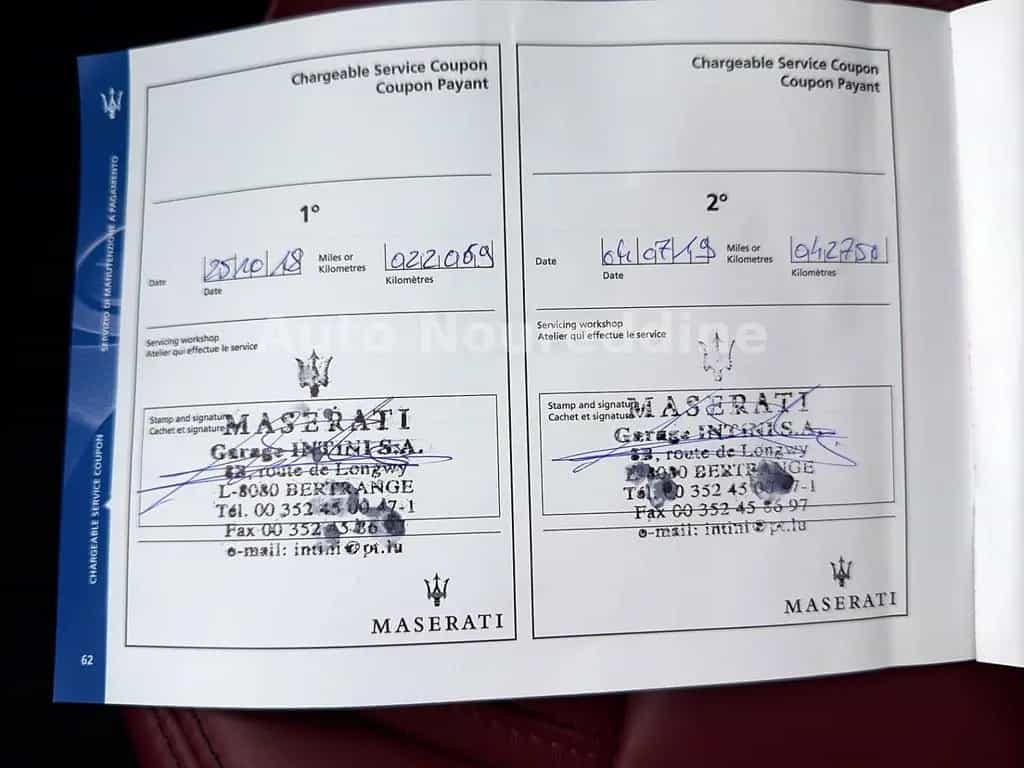 Chargeable Service Coupon
Coupon Payant
1°
Date
25 10 18
Date
Miles or
Kilometres
022069
Kilomètres
Servicing workshop
Atelier qui effectue le service
Stamp and signature
Cachet et signature
MASERATI
Garage INTINI S.A.
route de Longwy
L-8080 BERTRANGE
Tél. 00 352 45 00 47-1
Fax 00 352 45 86
e-mail: intini@pt.lu
MASERATI
Chargeable Service Coupon
Coupon Payant
2°
Date
04 07 19
Date
Miles or
Kilometres
042750
Kilomètres
Servicing workshop
Atelier qui effectue le service
Stamp and signature
Cachet et signature
MASERATI
Garage INTINI S.A.
route de Longwy
L-8080 BERTRANGE
Tél. 00 352 45 00 47-1
Fax 00 352 45 86 97
e-mail: intini@pt.lu
MASERATI
SERVIZIO DI MANUTENZIONE A PAGAMENTO
CHARGEABLE SERVICE COUPON
62
Auto Noureddine